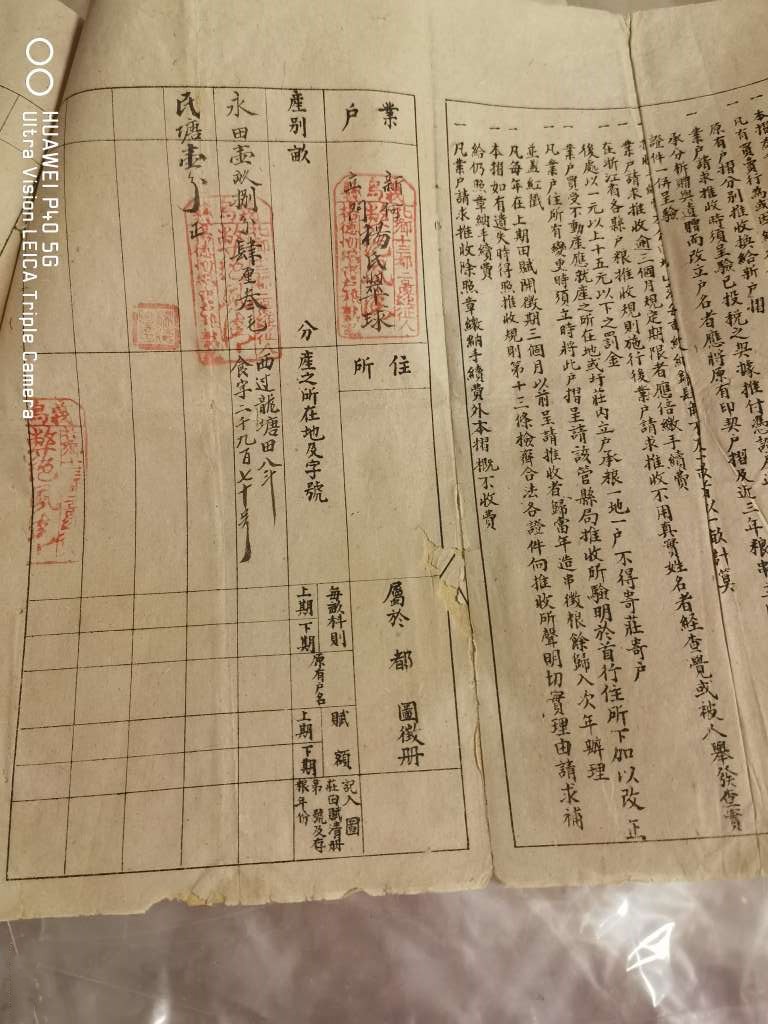 原有戶摺分別推收換給新戶摺
業戶請求推收時須呈驗已投稅之契據推付憑證及近三年糧串
承分析贈與遺贈而改立戶名者應將原有印契戶摺及近三年糧串
證件一併呈驗
業戶請求推收逾三個月規定期限者應倍繳手續費
在浙江省各縣戶糧推收規則施行後業戶請求推收不用真實姓名者經查覺或被人舉發查實
後處以一元以上十五元以下之罰金
業戶買受不動產應就產之所在地或圩莊內立戶承糧一地一戶不得寄莊寄戶
業戶住所有變更時須立時將此戶摺呈請該管縣局推收所驗明於首行住所下加以改正
並蓋紅戳
凡每年在上期田賦開徵期三個月以前呈請推收者歸當年造串徵糧餘歸入次年辦理
本摺如有遺失時得照推收規則第十三條檢齊合法各證件向推收所聲明切實理由請求補
給仍照章納手續費
凡業戶請求推收除照章繳納手續費外本摺概不收費
業戶
楊氏翠球
住所
屬於 都 圖徵冊
產別畝分
產之所在地及字號
每畝科則
上期 下期
原有戶名
賦額
上期 下期
記入 圖
莊田賦清冊
第 號及存
根年份
永田壹畝捌分肆厘叁毛
西过龍塘田八斗
食字二千九百七十号
民塘壹分正
HUAWEI P40 5G
Ultra Vision LEICA Triple Camera